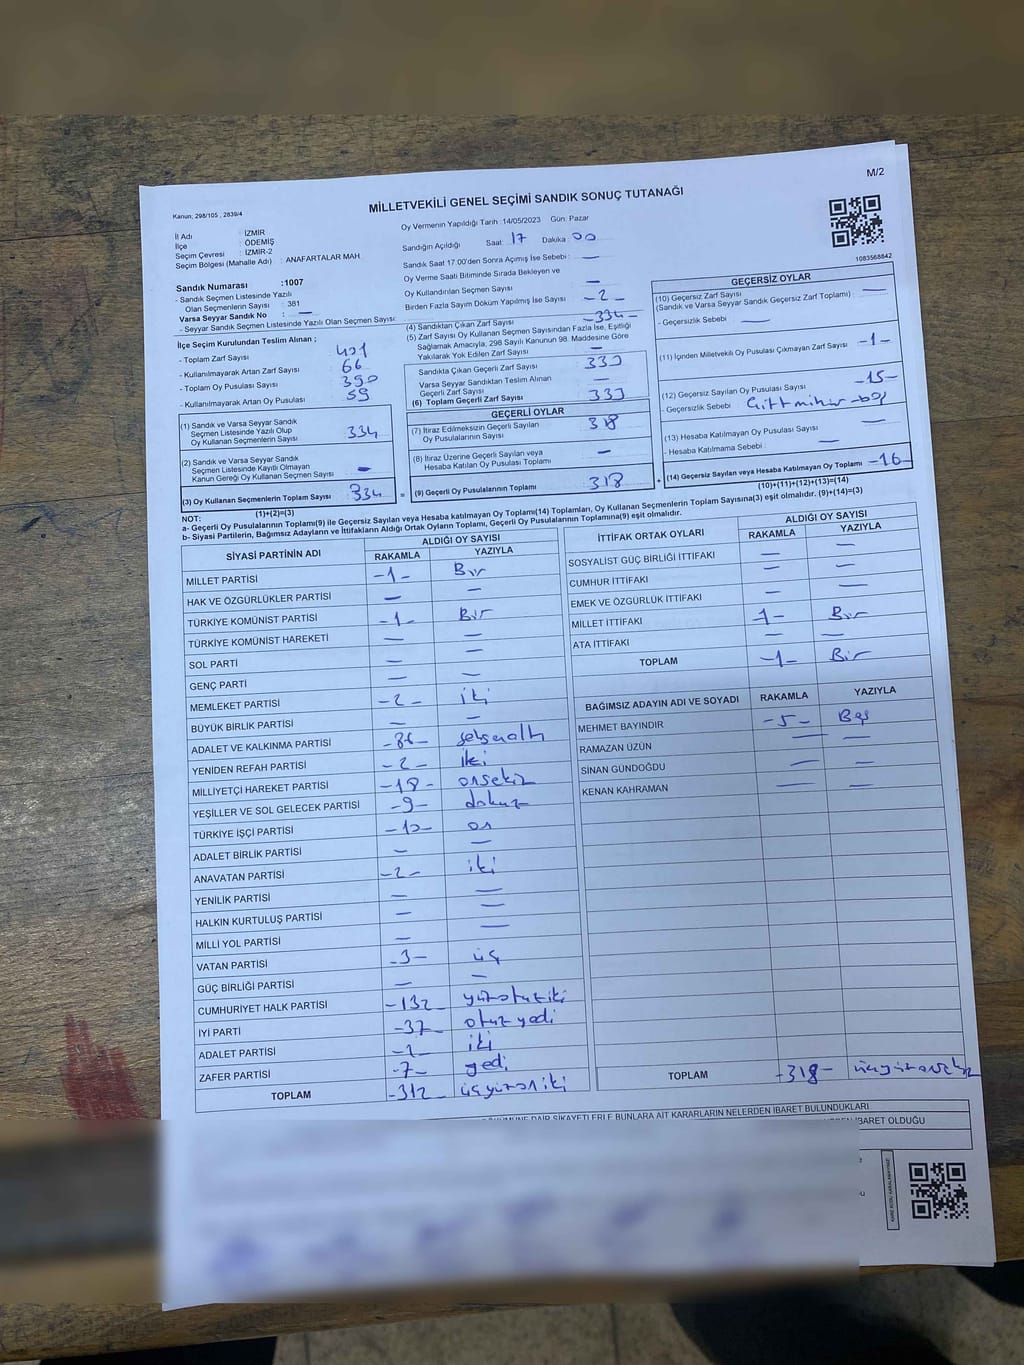 M/2
Kanun; 298/105 , 2839/4
MİLLETVEKİLİ GENEL SEÇİMİ SANDIK SONUÇ TUTANAĞI
İl Adı : İZMİR
İlçe : ÖDEMİŞ
Seçim Çevresi : İZMİR-2
Seçim Bölgesi (Mahalle Adı) : ANAFARTALAR MAH
Oy Vermenin Yapıldığı Tarih :14/05/2023 Gün: Pazar
Sandığın Açıldığı Saat: 17 Dakika: 00
Sandık Saat 17.00'den Sonra Açılmış İse Sebebi : —
Oy Verme Saati Bitiminde Sırada Bekleyen ve
Oy Kullandırılan Seçmen Sayısı —
Birden Fazla Sayım Döküm Yapılmış İse Sayısı -2-
1083568842
Sandık Numarası :1007
- Sandık Seçmen Listesinde Yazılı
Olan Seçmenlerin Sayısı : 381
Varsa Seyyar Sandık No : —
- Seyyar Sandık Seçmen Listesinde Yazılı Olan Seçmen Sayısı:
İlçe Seçim Kurulundan Teslim Alınan ;
- Toplam Zarf Sayısı : 401
- Kullanılmayarak Artan Zarf Sayısı : 66
- Toplam Oy Pusulası Sayısı : 390
- Kullanılmayarak Artan Oy Pusulası : 59
(1) Sandık ve Varsa Seyyar Sandık
Seçmen Listesinde Yazılı Olup
Oy Kullanan Seçmenlerin Sayısı 334
(2) Sandık ve Varsa Seyyar Sandık
Seçmen Listesinde Kayıtlı Olmayan
Kanun Gereği Oy Kullanan Seçmen Sayısı —
(3) Oy Kullanan Seçmenlerin Toplam Sayısı 334
(1)+(2)=(3)
(4) Sandıktan Çıkan Zarf Sayısı -334-
(5) Zarf Sayısı Oy Kullanan Seçmen Sayısından Fazla İse, Eşitliği
Sağlamak Amacıyla, 298 Sayılı Kanunun 98. Maddesine Göre
Yakılarak Yok Edilen Zarf Sayısı —
Sandıkta Çıkan Geçerli Zarf Sayısı 333
Varsa Seyyar Sandıktan Teslim Alınan
Geçerli Zarf Sayısı —
(6) Toplam Geçerli Zarf Sayısı 333
GEÇERLİ OYLAR
(7) İtiraz Edilmeksizin Geçerli Sayılan
Oy Pusulalarının Sayısı 318
(8) İtiraz Üzerine Geçerli Sayılan veya
Hesaba Katılan Oy Pusulası Toplamı —
= (9) Geçerli Oy Pusulalarının Toplamı 318
GEÇERSİZ OYLAR
(10) Geçersiz Zarf Sayısı
(Sandık ve Varsa Seyyar Sandık Geçersiz Zarf Toplamı) : —
- Geçersizlik Sebebi : —
(11) İçinden Milletvekili Oy Pusulası Çıkmayan Zarf Sayısı -1-
(12) Geçersiz Sayılan Oy Pusulası Sayısı -15-
- Geçersizlik Sebebi :
(13) Hesaba Katılmayan Oy Pusulası Sayısı —
- Hesaba Katılmama Sebebi : —
+ (14) Geçersiz Sayılan veya Hesaba Katılmayan Oy Toplamı -16-
(10)+(11)+(12)+(13)=(14)
NOT:
a- Geçerli Oy Pusulalarının Toplamı(9) ile Geçersiz Sayılan veya Hesaba katılmayan Oy Toplamı(14) Toplamları, Oy Kullanan Seçmenlerin Toplam Sayısına(3) eşit olmalıdır. (9)+(14)=(3)
b- Siyasi Partilerin, Bağımsız Adayların ve İttifakların Aldığı Ortak Oyların Toplamı, Geçerli Oy Pusulalarının Toplamına(9) eşit olmalıdır.
SİYASİ PARTİNİN ADI ALDIĞI OY SAYISI
RAKAMLA YAZIYLA
MİLLET PARTİSİ -1- Bir
HAK VE ÖZGÜRLÜKLER PARTİSİ — —
TÜRKİYE KOMÜNİST PARTİSİ -1- Bir
TÜRKİYE KOMÜNİST HAREKETİ — —
SOL PARTİ — —
GENÇ PARTİ — —
MEMLEKET PARTİSİ -2- iki
BÜYÜK BİRLİK PARTİSİ — —
ADALET VE KALKINMA PARTİSİ -86- seksenaltı
YENİDEN REFAH PARTİSİ -2- iki
MİLLİYETÇİ HAREKET PARTİSİ -18- onsekiz
YEŞİLLER VE SOL GELECEK PARTİSİ -9- dokuz
TÜRKİYE İŞÇİ PARTİSİ -10- on
ADALET BİRLİK PARTİSİ — —
ANAVATAN PARTİSİ -2- iki
YENİLİK PARTİSİ — —
HALKIN KURTULUŞ PARTİSİ — —
MİLLİ YOL PARTİSİ — —
VATAN PARTİSİ -3- üç
GÜÇ BİRLİĞİ PARTİSİ — —
CUMHURİYET HALK PARTİSİ -132- yüzotuziki
İYİ PARTİ -37- otuz yedi
ADALET PARTİSİ -2- iki
ZAFER PARTİSİ -7- yedi
TOPLAM -312- üçyüzoniki
İTTİFAK ORTAK OYLARI ALDIĞI OY SAYISI
RAKAMLA YAZIYLA
SOSYALİST GÜÇ BİRLİĞİ İTTİFAKI — —
CUMHUR İTTİFAKI — —
EMEK VE ÖZGÜRLÜK İTTİFAKI — —
MİLLET İTTİFAKI -1- Bir
ATA İTTİFAKI — —
TOPLAM -1- Bir
BAĞIMSIZ ADAYIN ADI VE SOYADI RAKAMLA YAZIYLA
MEHMET BAYINDIR -5- Beş
RAMAZAN ÜZÜN — —
SİNAN GÜNDOĞDU — —
KENAN KAHRAMAN — —
TOPLAM -318- üçyüzonsekiz
DÖKÜMÜNE DAİR ŞİKAYETLERLE BUNLARA AİT KARARLARIN NELERDEN İBARET BULUNDUKLARI
İBARET OLDUĞU